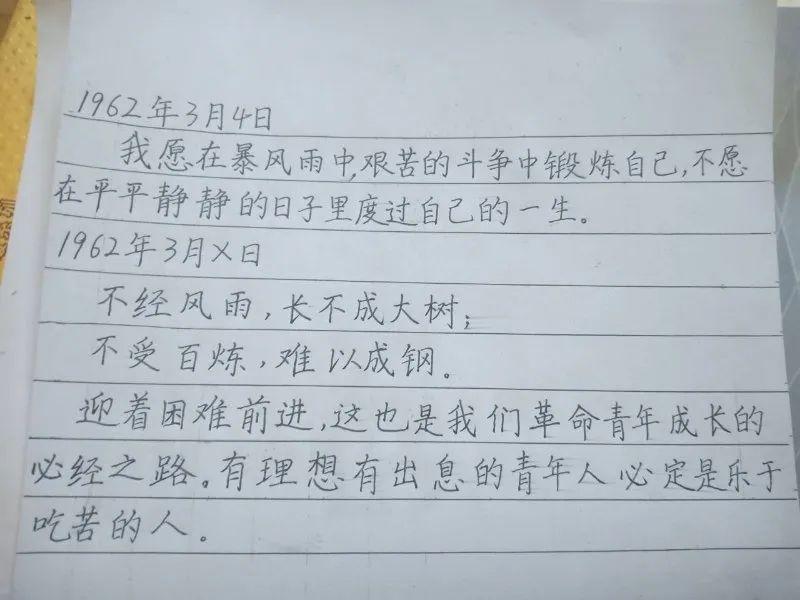 1962年3月4日
我愿在暴风雨中,艰苦的斗争中锻炼自己,不愿
在平平静静的日子里度过自己的一生。
1962年3月X日
不经风雨,长不成大树;
不受百炼,难以成钢。
迎着困难前进,这也是我们革命青年成长的
必经之路。有理想有出息的青年人必定是乐于
吃苦的人。